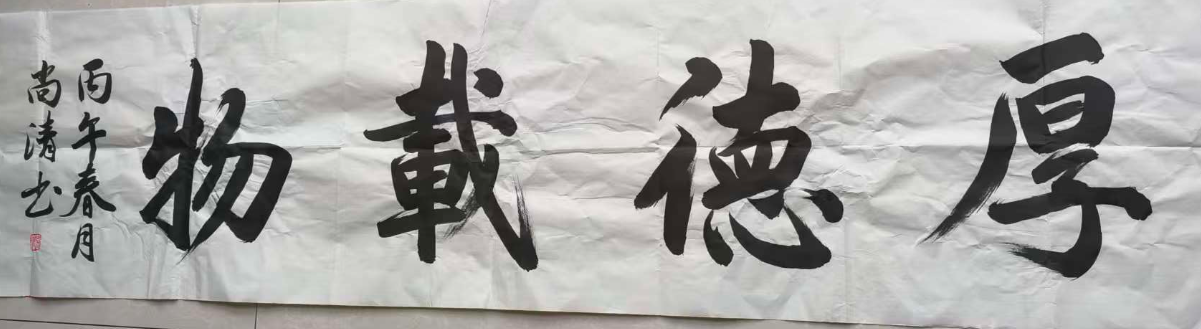 厚德載物
丙午春月
尚清书